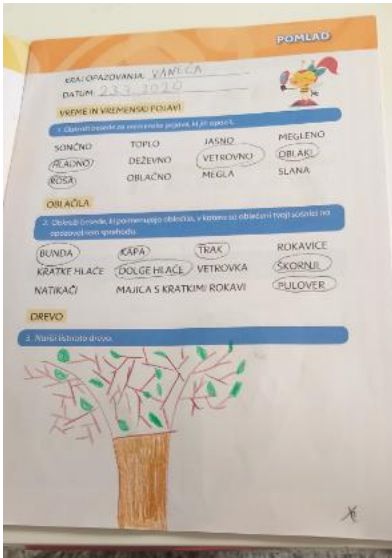 POMLAD
KRAJ OPAZOVANJA: VANEČA
DATUM: 23.3.2020
VREME IN VREMENSKI POJAVI
1. Obkroži besede za vremenske pojave, ki jih opaziš.
SONČNO TOPLO JASNO MEGLENO
HLADNO DEŽEVNO VETROVNO OBLAKI
ROSA OBLAČNO MEGLA SLANA
OBLAČILA
2. Obkroži besede, ki poimenujejo oblačila, v katera so oblečeni tvoji sošolci na
opazovalnem sprehodu.
BUNDA KAPA TRAK ROKAVICE
KRATKE HLAČE DOLGE HLAČE VETROVKA ŠKORNJI
NATIKAČI MAJICA S KRATKIMI ROKAVI PULOVER
DREVO
3. Nariši listnato drevo.